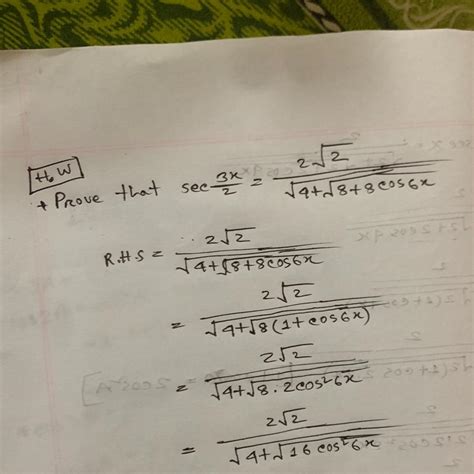 H.W
+ Prove that sec 3x/2 = 2√2 / √4+√8+8cos6x
R.H.S = 2√2 / √4+√8+8cos6x
= 2√2 / √4+√8(1+cos6x)
= 2√2 / √4+√8.2cos²6x
= 2√2 / √4+√16cos²6x